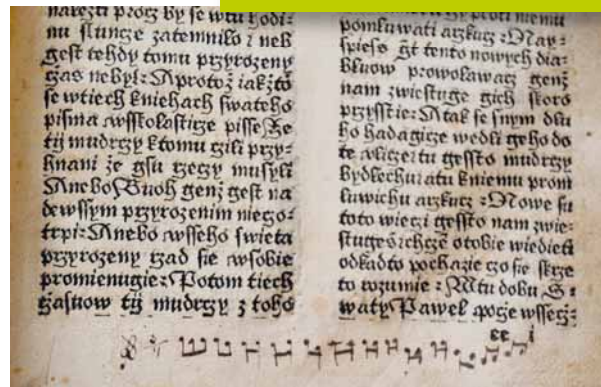 nalezti procz by se wtu hodi=
nu slunce zatemnilo i neb
gest tehdy tomu przyrozeny
czas nebyl: A protoz iakzto
se wtiech kniehach swateho
pisma a wsskolastice pisse Ze
tij mudrcy k tomu gili przy=
hnani ze gsu rzecy musyli
A nebo Buoh genz gest na
dewssym przyrozenim nieco=
trpi: A nebo wsseho swieta
przyrozeny rzad sie w sobie
promienugie: Potom tiech
czasuow tij mudrcy z toho
proti niemu
pomluwati arzkuc: Nay=
spiess gt tento nowych dia=
bluow prowolawacz genz
nam zwiestuge gich skoro
przysstie: A tak se snym dlu
ho hadagice wedli geho do
te ulicze tu gessto mudrcy
bydlechu a tu k niemu prom
luwichu arzkuc: Nowe su
toto wieci gessto nam zwie=
stuges i chcze o tobie wiedieti
odkadto pochazie czo sie skrze
to rozumie: A tu dobu S=
waty Pawel poczie wssecz=